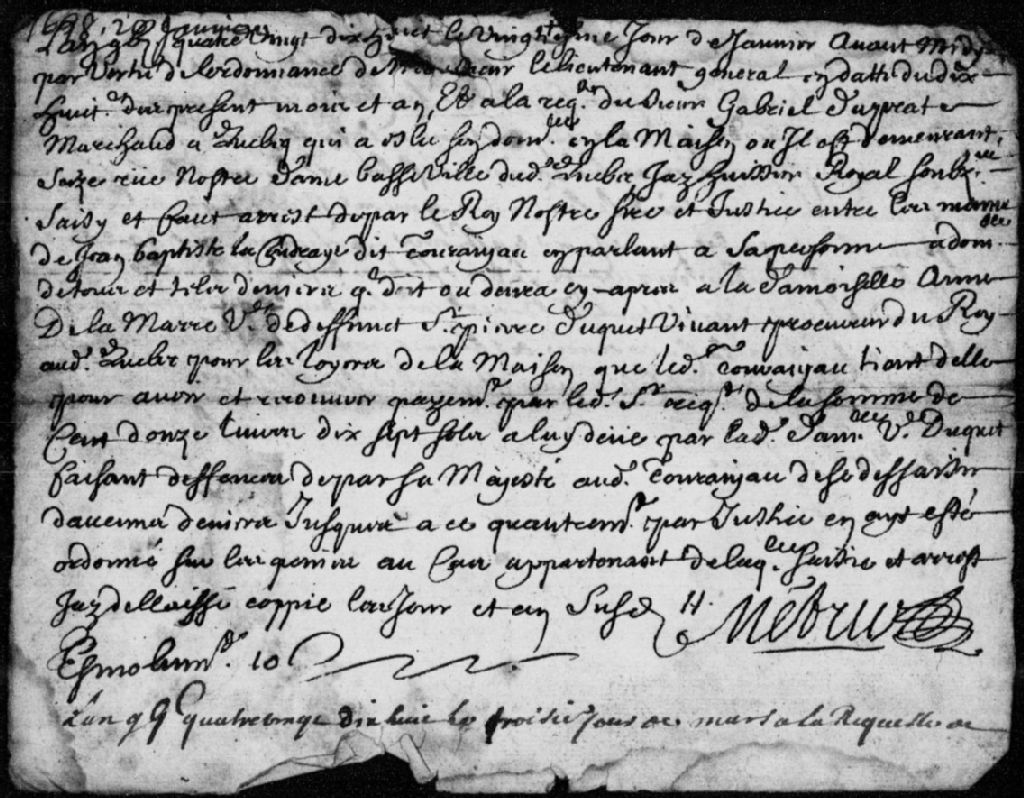 1698. 20 Janvier
quatre vingt dix huict le vingtiesme Jour de Janvier avant Midy
par vertu de lordonnance de Monsieur le lieutenant general en datte du dix
huict.e du present mois et an, Et a la req.te du Sieur Gabriel Duprat
Marchand a Quebec qui a eslu son dom.lle en la Maison ou Il est demeurant
size rue Nostre dame basse Ville dud. Quebec Jay huissier Royal soub.né
Saisy et faict arrest de par le Roy Nostre sire et Justice entre les mains
de Jean baptiste la Coudraye dit Touranjau en parlant a sa personne a dom.lle
de tous et telz deniers q. doit ou devra cy-apres a la damoiselle Anne
De la Marre V.ve de deffunct S.r pierre Duquet Vivant procureur du Roy
aud. Quebec pour les loyers de la Maison que led. Touranjau tient delle
pour avoir et recouvrer payem.t par led. S.r req.t de la somme de
Cent donze livres dix sept solz a luy deue par lad. dam.lle V.ve Duquet
faisant deffences de par sa Majesté aud. Touranjau de se dessaisir
daucuns deniers Jusques a ce quautrem.t par Justice en ayt esté
ordonné sur les peines au Cas appartenant de laq.lle saisie et arrest
Jay dellaissé coppie les Jour et an Susd H. Metru
Esmolum. 10
L'an 9 9 quatrevingt dix huic le troisie Jour de mars a la Requeste de